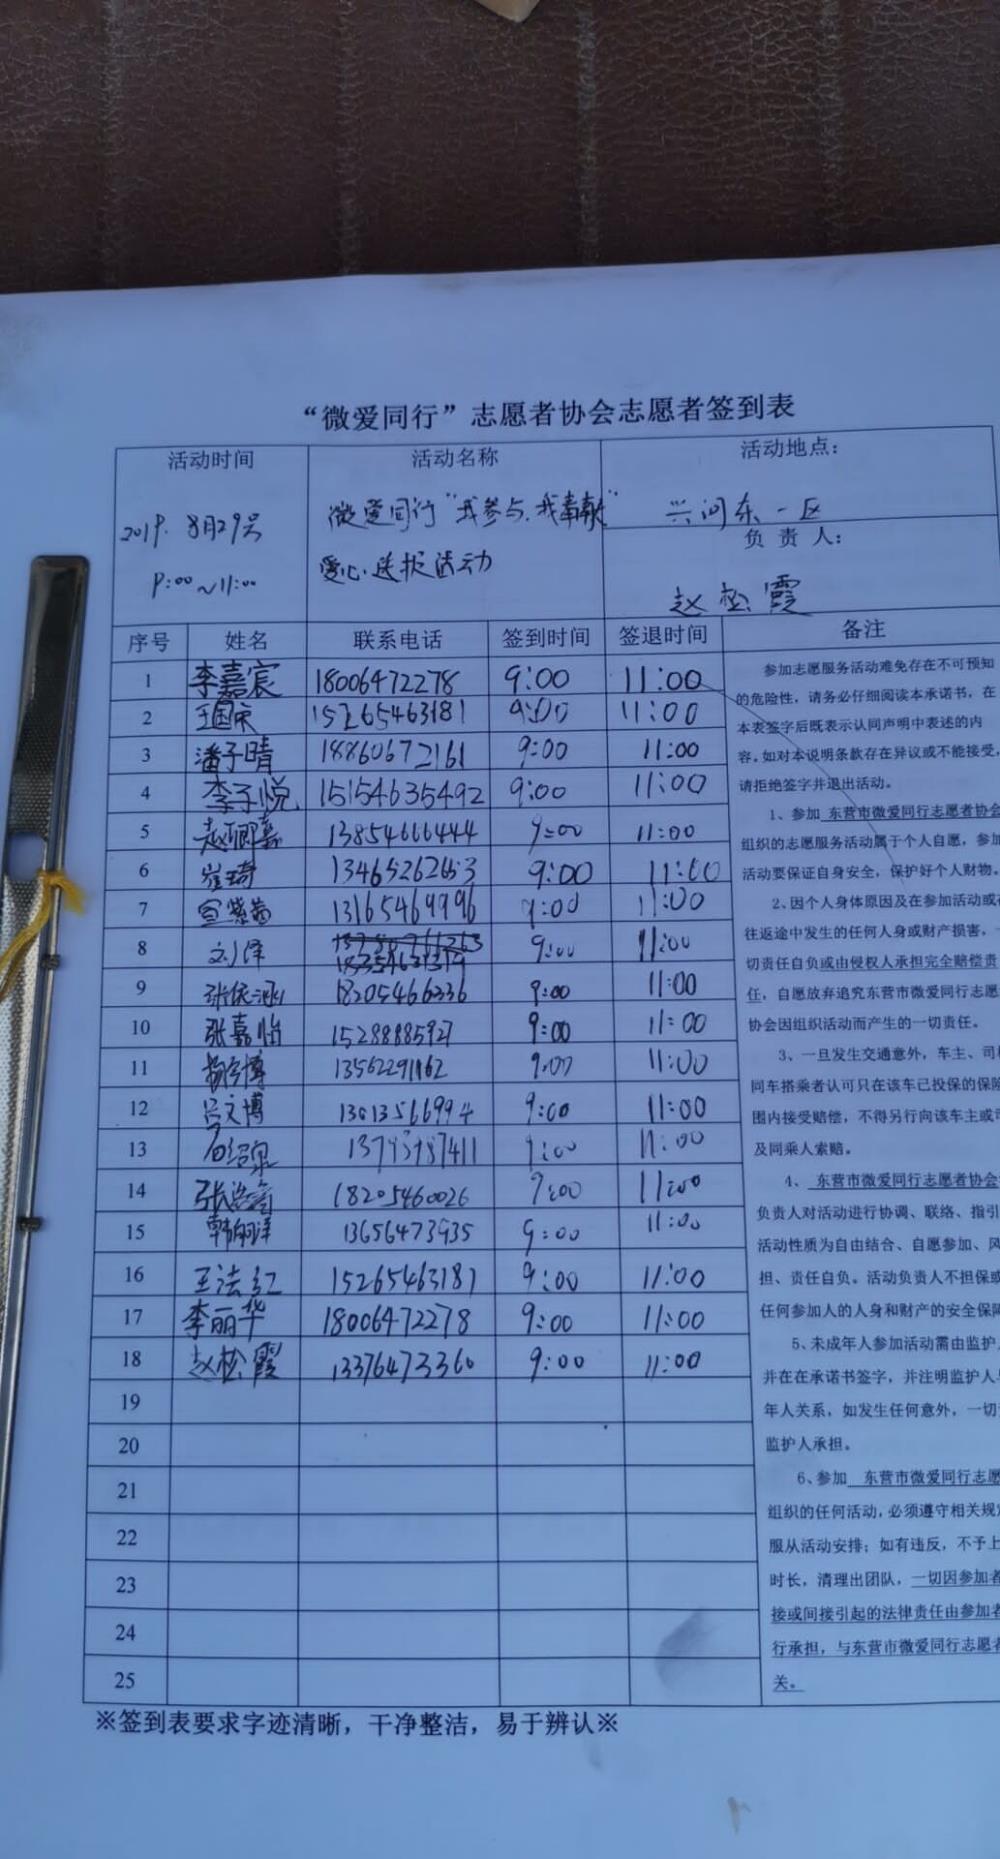 “微爱同行”志愿者协会志愿者签到表
活动时间 活动名称 活动地点：
2019. 8月29号 微爱同行“我参与.我奉献” 兴河东一区
负责人：
9:00~11:00 爱心送报活动 赵松霞
序号 姓名 联系电话 签到时间 签退时间 备注
1 李嘉宸 18006472278 9:00 11:00
2 王国宋 15265463181 9:00 11:00
3 潘子晴 18860672161 9:00 11:00
4 李子悦 15154635492 9:00 11:00
5 赵卿嘉 13854666444 9:00 11:00
6 崔琦 13465262653 9:00 11:00
7 宣紫茜 13165469996 9:00 11:00
8 刘洋 9:00 11:00
9 张依涵 18205466336 9:00 11:00
10 张嘉怡 15288885927 9:00 11:00
11 杨宇博 13562291162 9:00 11:00
12 吕文博 9:00 11:00
13 9:00 11:00
14 18205460026 9:00 11:00
15 13656473935 9:00 11:00
16 王法红 15265463181 9:00 11:00
17 李丽华 18006472278 9:00 11:00
18 赵松霞 13376473360 9:00 11:00
19
20
21
22
23
24
25
参加志愿服务活动难免存在不可预知
的危险性，请务必仔细阅读本承诺书，在
本表签字后既表示认同声明中表述的内
容。如对本说明条款存在异议或不能接受，
请拒绝签字并退出活动。
1、参加 东营市微爱同行志愿者协会
组织的志愿服务活动属于个人自愿，参加
活动要保证自身安全，保护好个人财物。
2、因个人身体原因及在参加活动或
往返途中发生的任何人身或财产损害，一
切责任自负或由侵权人承担完全赔偿责
任，自愿放弃追究东营市微爱同行志愿
协会因组织活动而产生的一切责任。
3、一旦发生交通意外，车主、司
同车搭乘者认可只在该车已投保的保险
围内接受赔偿，不得另行向该车主或
及同乘人索赔。
4、 东营市微爱同行志愿者协会
负责人对活动进行协调、联络、指引
活动性质为自由结合、自愿参加、风
担、责任自负。活动负责人不担保或
任何参加人的人身和财产的安全保障
5、未成年人参加活动需由监护
并在在承诺书签字，并注明监护人
年人关系，如发生任何意外，一切
监护人承担。
6、参加 东营市微爱同行志愿
组织的任何活动，必须遵守相关规
服从活动安排；如有违反，不予上
时长，清理出团队，一切因参加者
接或间接引起的法律责任由参加者
行承担，与东营市微爱同行志愿者
关。
※签到表要求字迹清晰，干净整洁，易于辨认※